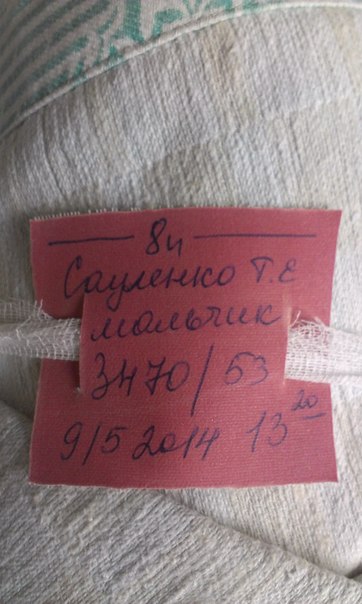 8ч
Сауленко Т.Е
мальчик
3470/53
9/5 2014 13 20